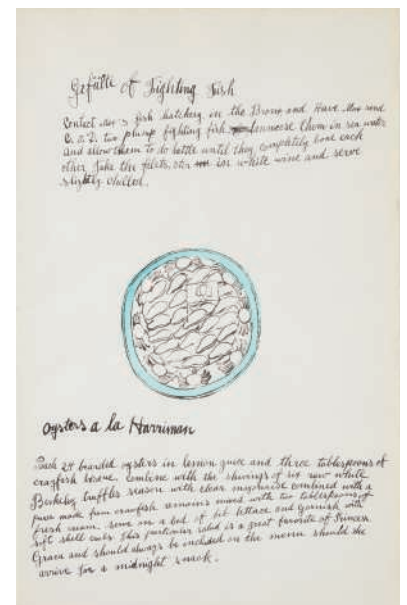 Gefilte of Fighting Fish
Contact Moe's fish hatchery in the Bronx and Have Moe send
C.O.D. two plump fighting fish. Immerse them in sea water
and allow them to do battle until they completely bone each
other. Take the filets, stew in white wine and serve
slightly chilled.
Oysters a la Harriman
Soak 24 bearded oysters in lemon juice and three tablespoons of
crayfish brane. Combine with the shavings of six raw white
Berkeley truffles season with clear mayonaise combined with a
puree made from crawfish remains mixed with two tablespoons of
fresh cream. serve on a bed of bib lettace and garnish with
soft shell crabs. This particular salad is a great favorite of Princess
Grace and should always be included on the menu should she
arrive for a midnight snack.